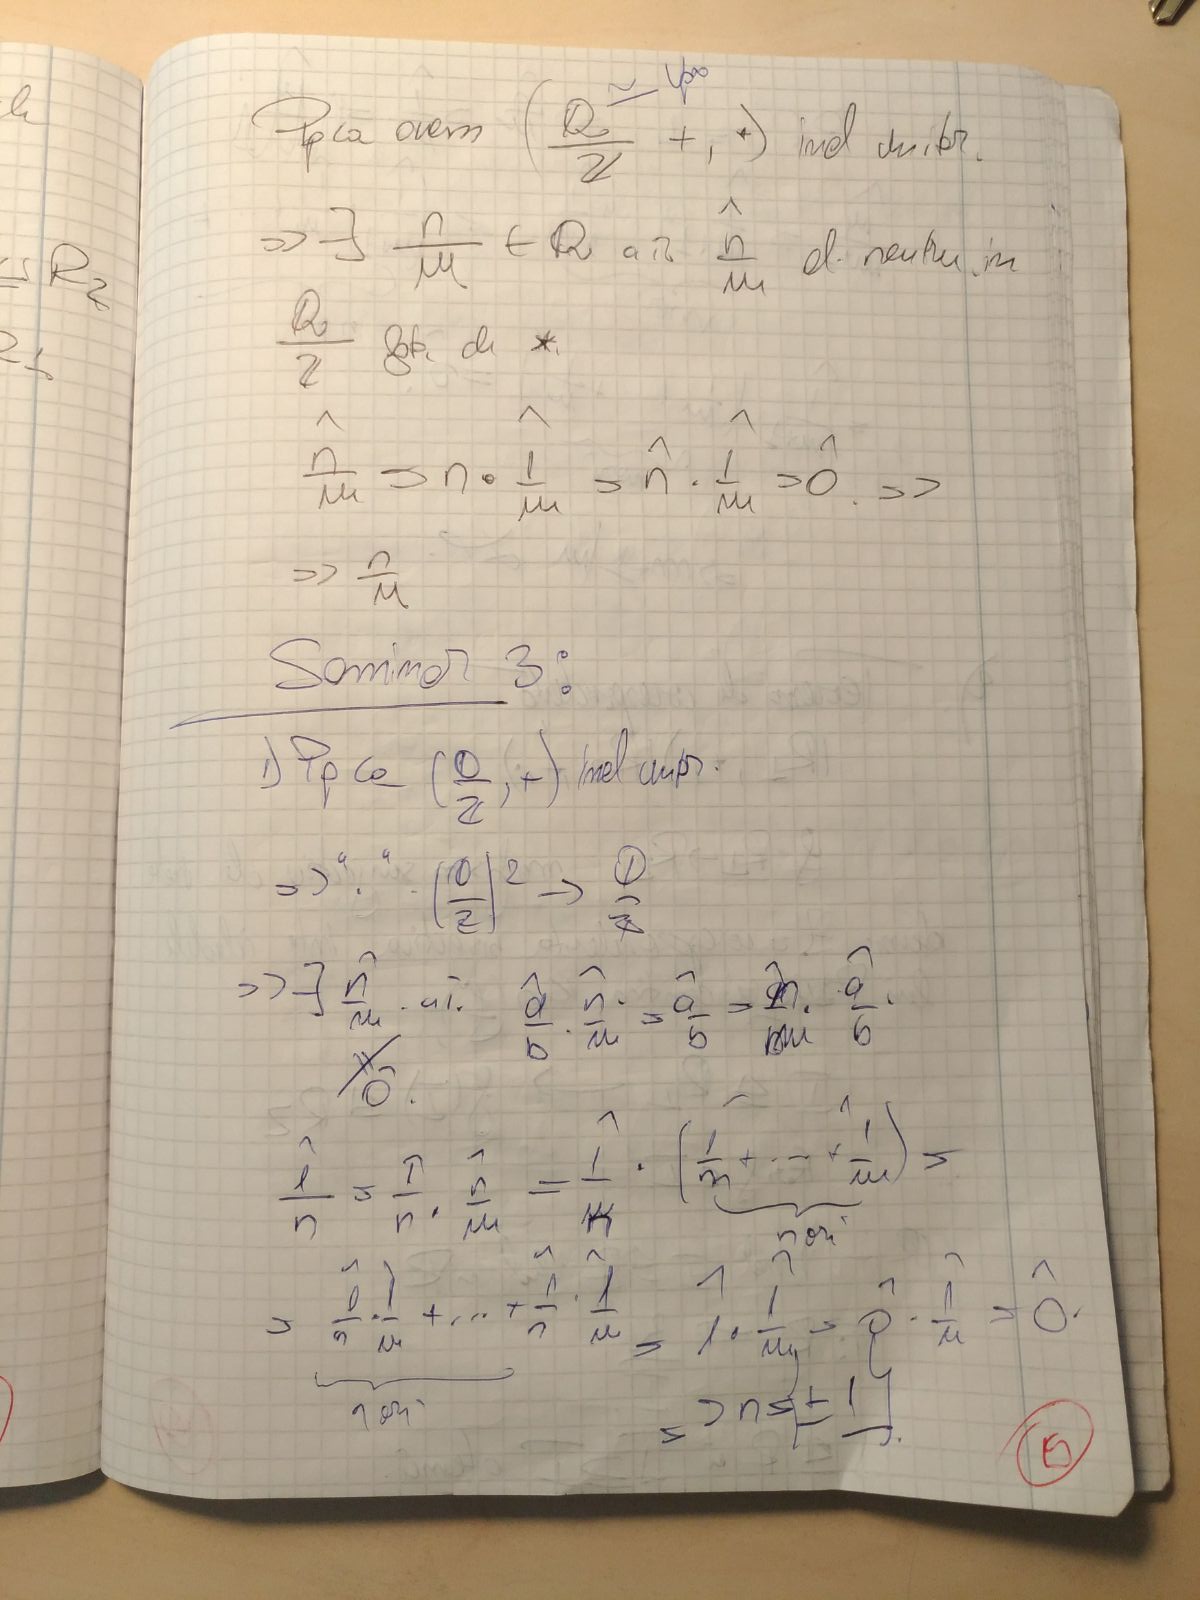 Ppca avem (ℚ/ℤ +, *) inel unitar.
=> ∃ n/m ∈ ℚ aî n̂/m el. neutru in
ℚ/ℤ față de *.
n̂/m = n · 1̂/m = n̂ · 1̂/m = 0̂. =>
=> n/m
Seminar 3:
1) Ppca (ℚ/ℤ, +) inel unitar.
=> "·" · (ℚ/ℤ)² → ℚ/ℤ
=> ∃ n̂/m · aî. â/b · n̂/m = â/b = n̂/m · â/b.
0̂.
1̂/n = 1̂/n · n̂/m = 1̂/n · (1̂/m + ... + 1̂/m) =
n ori
= 1̂/n · 1̂/m + ... + 1̂/n · 1̂/m = 1̂ · 1̂/m = 0̂ · 1̂/m = 0̂.
n ori
=> n = ±1
5